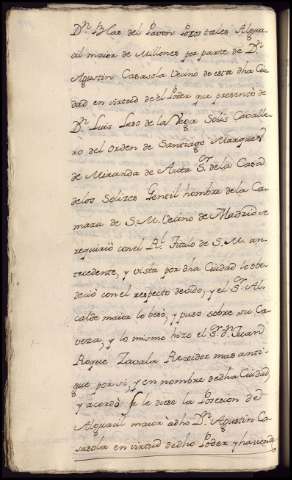 Dn. Blas del Pavon Pozo tales Algua
cil maior de Millones por parte de Dn.
Agustin Casasola Vecino de esta dha Ciu
dad en virtud de el Poder que presentó de
Dn. Luis Laso de la Vega Solis Cavalle
ro del Orden de Santiago Marques
de Miranda de Auta Sr. de la Casa
de los Solises Gentil hombre de la Ca
mara de S. M. Vecino de Madrid se
requirió con el Rl. Titulo de S. M. an
tecedente, y vista por dha Ciudad lo obe
deció con el respecto devido, y el Sr. Al
calde maior lo besó, y puso sobre su Ca
veza, y lo mismo hizo el Sr. Dn.
Roque Zavala Rexidor mas anti
guo, por si, y en nombre de dha Ciudad
y acordó se le diese la Posecion de
Alguacil maior a dho Dn. Agustin Ca
sasola en virtud de dho Poder y haviendo